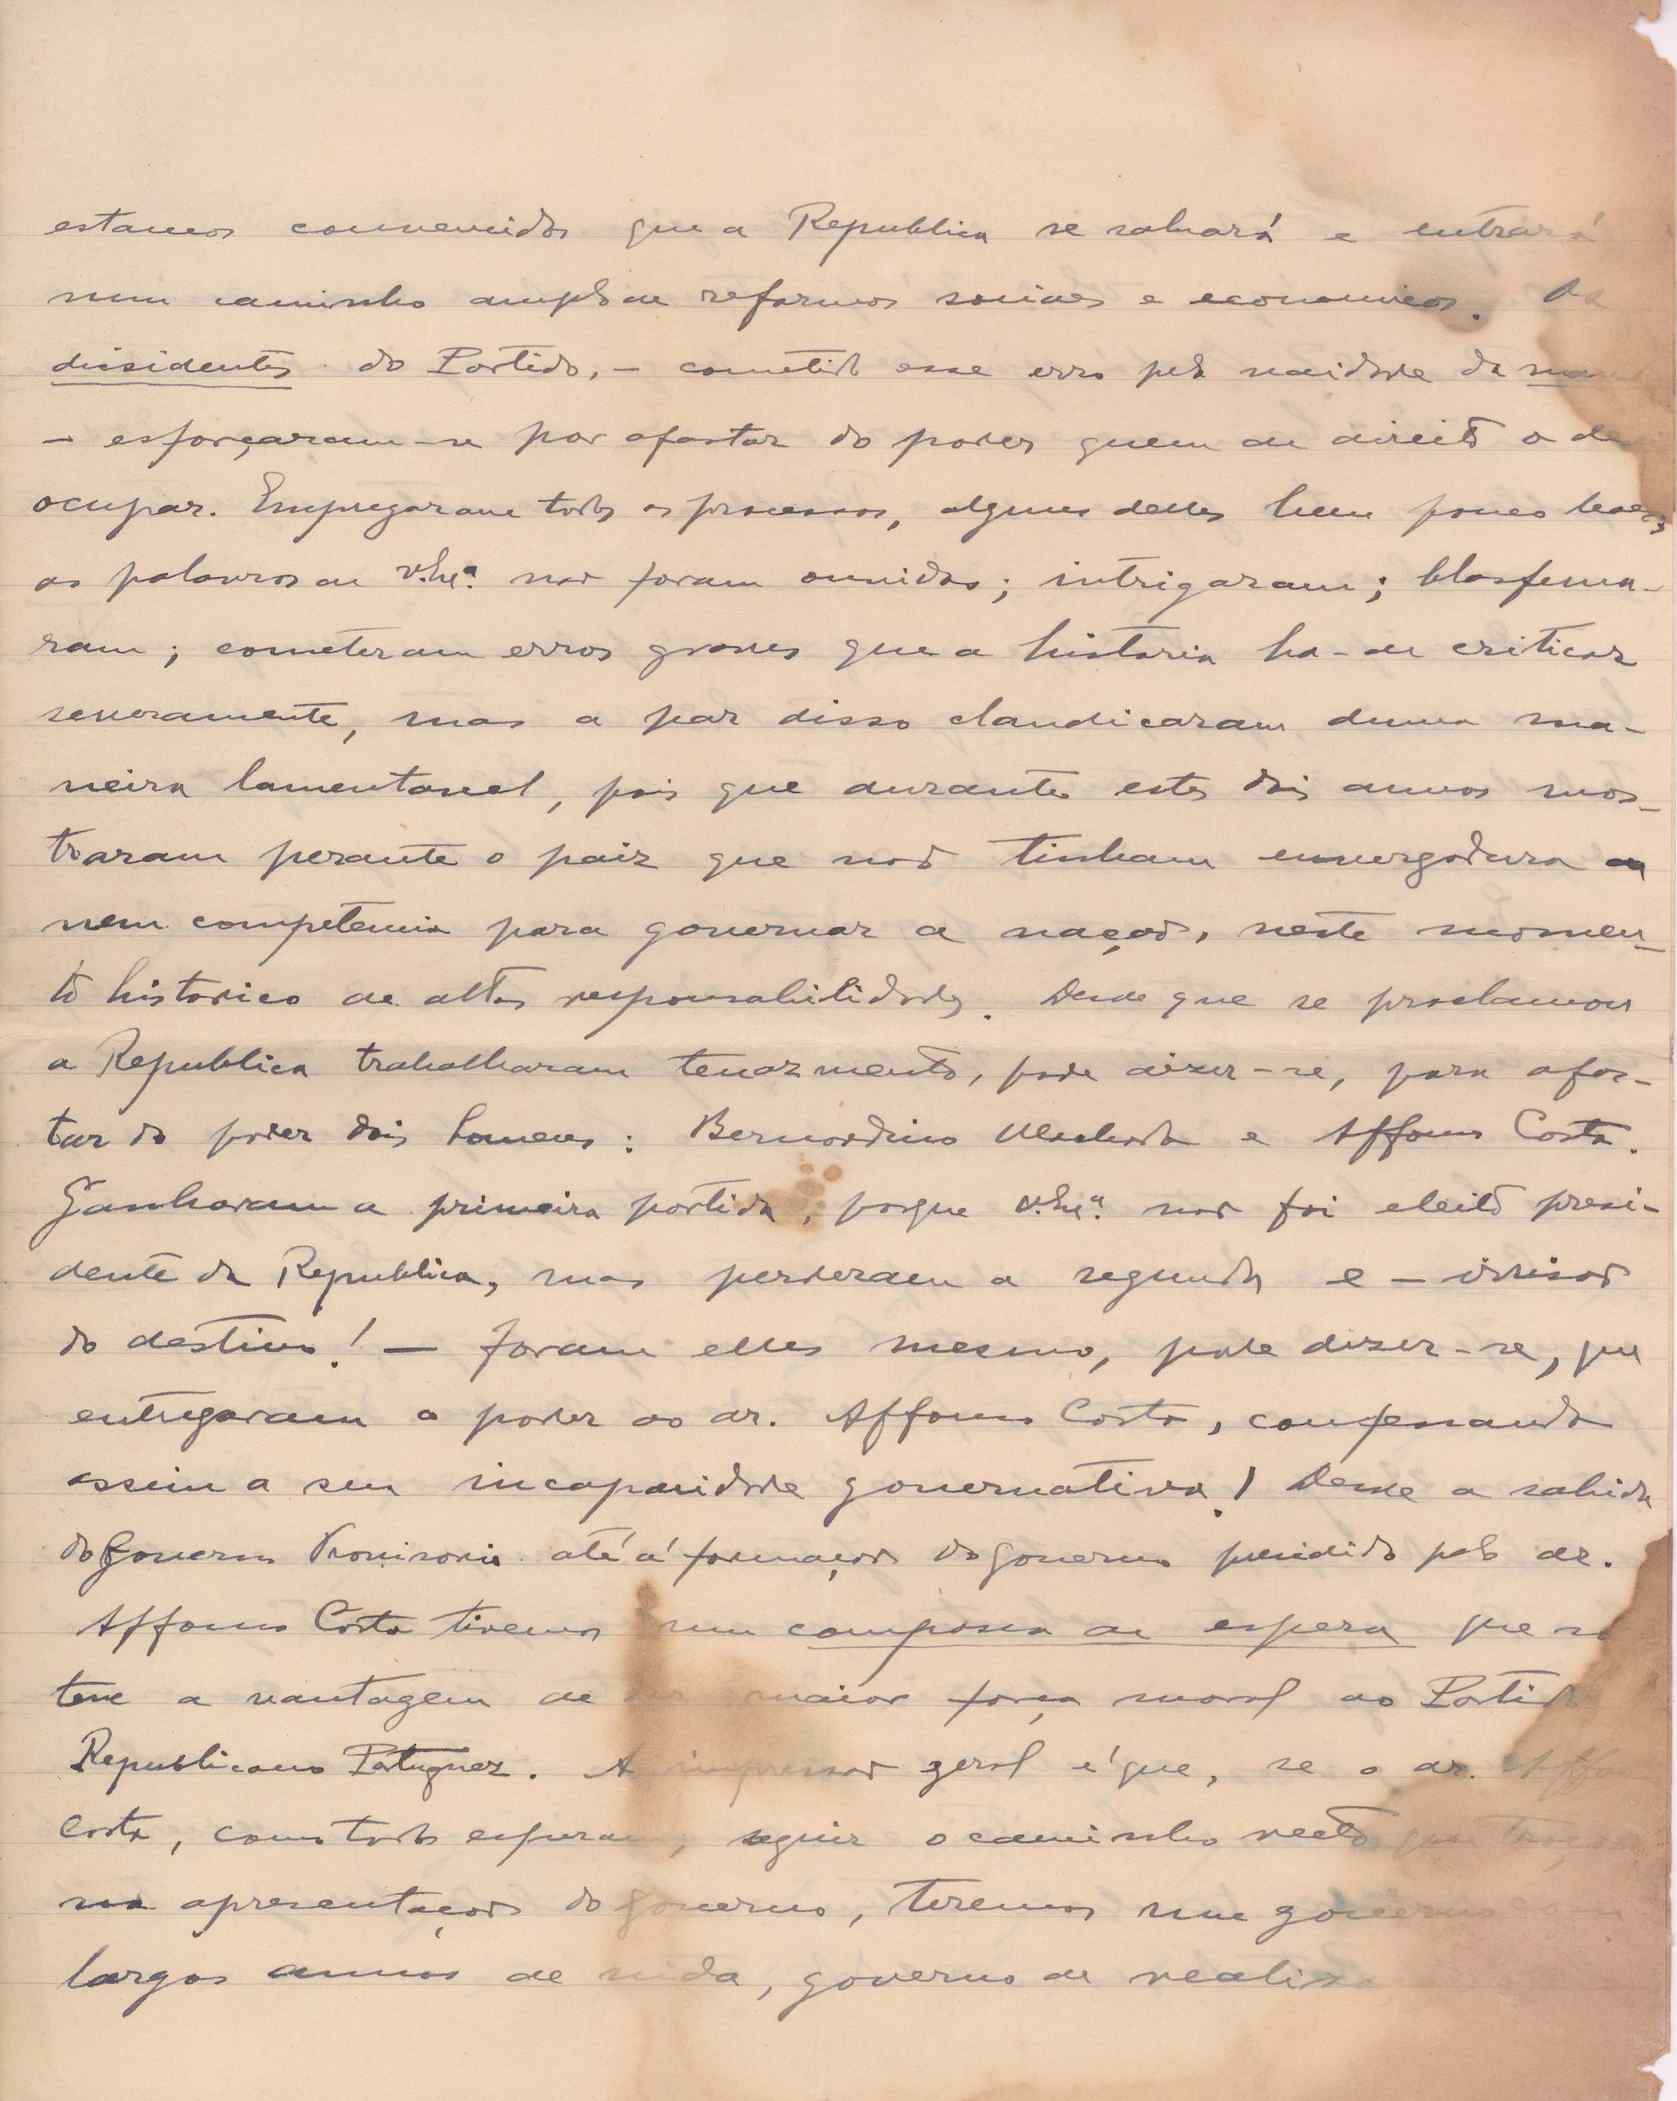 estamos convencidos que a Republica se salvará e entrará
num caminho amplo de reformas sociaes e economicas. Os
dissidentes do Partido, - cometido esse erro pela vaidade de
- esforçaram-se por afastar do poder quem de direito o
ocupar. Empregaram todos os processos, alguns delles bem pouco leaes;
as palavras de V. Exª. não foram ouvidas; intrigaram; blasfema-
ram; cometeram erros graves que a historia ha-de criticar
severamente, mas a par disso claudicaram duma ma-
neira lamentavel, pois que durante estes dois annos mos-
traram perante o paiz que não tinham envergadura
nem competencia para governar a nação, neste momen-
to historico de altas responsabilidades. Desde que se proclamou
a Republica trabalharam tenazmente, pode dizer-se, para afas-
tar do poder dois homens: Bernardino Machado e Affonso Costa.
Ganharam a primeira partida, porque V. Exª. não foi eleito presi-
dente da Republica, mas perderam a segunda e - irrisão
do destino! - foram elles mesmo, pode dizer-se, que
entregaram o poder ao dr. Affonso Costa, confessando
assim a sua incapacidade governativa! Desde a sahida
do Governo Provisorio até á formação do governo presidido pelo dr.
Affonso Costa tivemos num compasso de espera que só
teve a vantagem de dar maior força moral ao Partido
Republicano Portuguez. A impressão geral é que, se o dr. Affonso
Costa, como todos esperam, seguir o caminho recto que
na apresentação do governo, teremos um governo
largos annos de vida, governo de